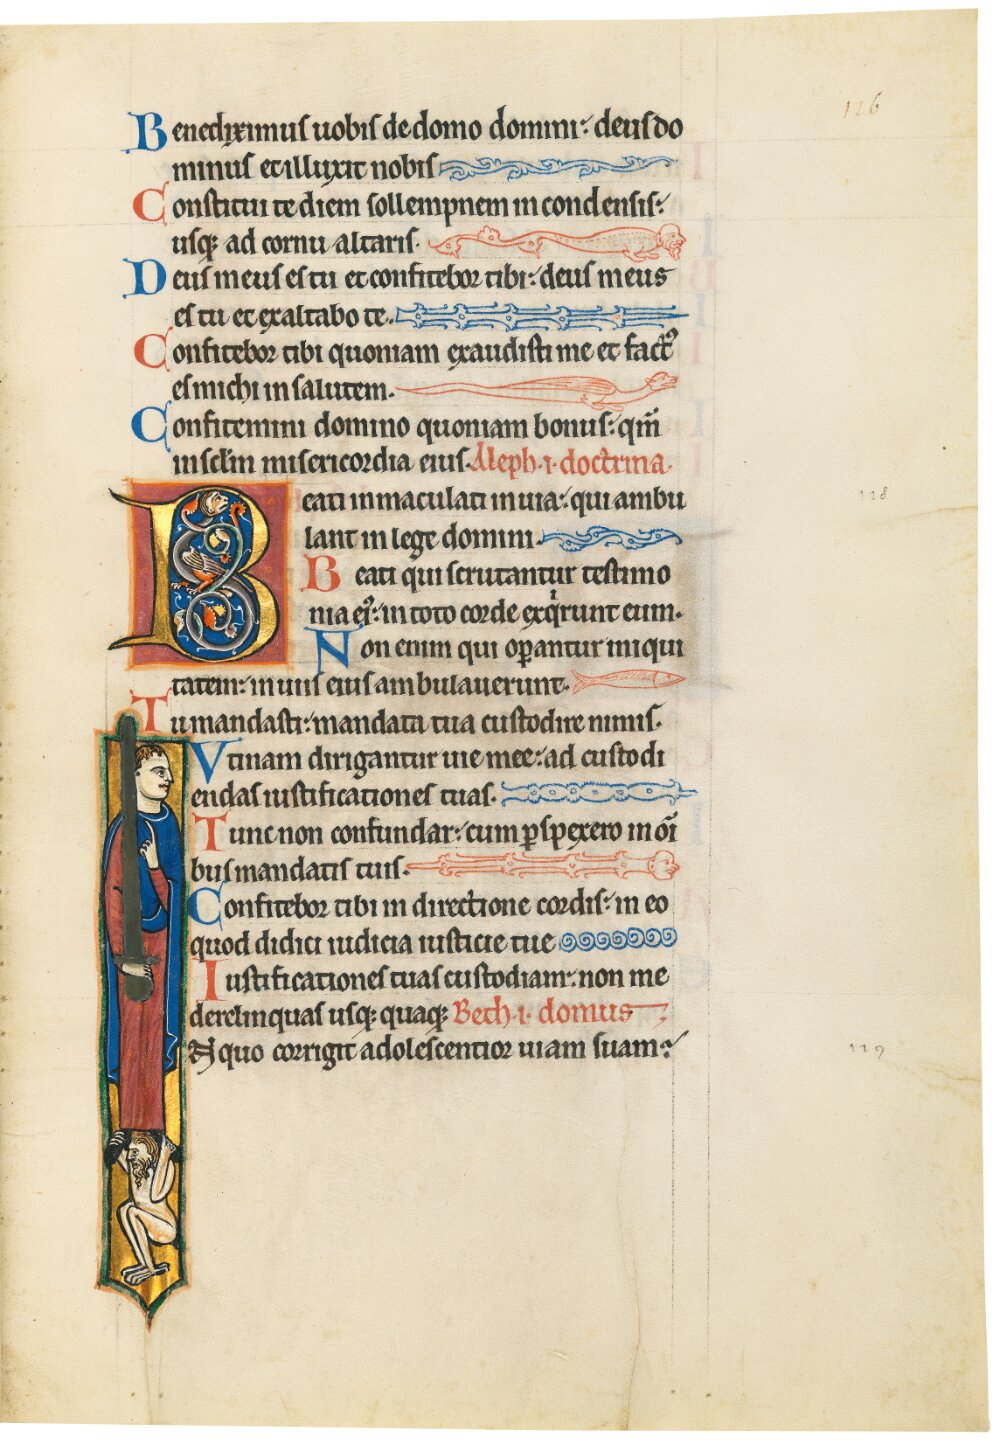 126
Benediximus uobis de domo domini: deus do
minus et illuxit nobis
Constitui te diem sollempnem in condensis:
usq; ad cornu altaris.
Deus meus es tu et confitebor tibi: deus meus
es tu et exaltabo te.
Confitebor tibi quoniam exaudisti me et factꝰ
es michi in salutem.
Confitemini domino quoniam bonus: qm̄
in sclm̄ misericordia eius. Aleph .i. doctrina.
Beati inmaculati in uia: qui ambu
118
lant in lege domini.
Beati qui scrutantur testimo
nia ei': in toto corde exqͥrunt eum.
Non enim qui oꝑantur iniqui
tatem: in uiis eius ambulauerunt.
Tu mandasti: mandata tua custodire nimis.
Vtinam dirigantur uie mee: ad custodi
endas iustificationes tuas.
Tunc non confundar: cum ꝑspexero in oī
bus mandatis tuis.
Confitebor tibi in directione cordis: in eo
quod didici iudicia iusticie tue
Iustificationes tuas custodiam: non me
derelinquas usq; quaq; Beth .i. domus
In quo corrigit adolescentior uiam suam:
119